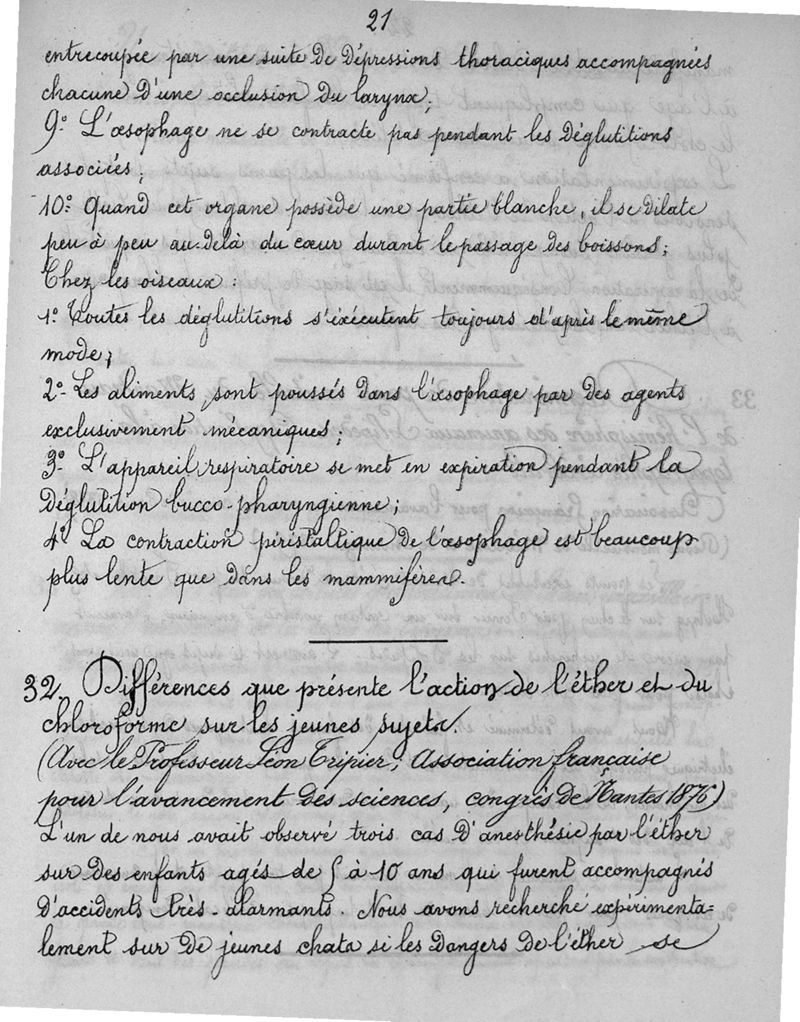 21
entrecoupée par une suite de dépressions thoraciques accompagnées
chacune d'une occlusion du larynx;
9º L'œsophage ne se contracte pas pendant les déglutitions
associées;
10º Quand cet organe possède une partie blanche, il se dilate
peu à peu au-delà du cœur durant le passage des boissons;
Chez les oiseaux:
1º Toutes les déglutitions s'éxécutent toujours d'après le même
mode;
2º Les aliments sont poussés dans l'œsophage par des agents
exclusivement mécaniques;
3º L'appareil respiratoire se met en expiration pendant la
déglutition bucco-pharyngienne;
4º La contraction péristaltique de l'œsophage est beaucoup
plus lente que dans les mammifères.
32. Différences que présente l'action de l'éther et du
chloroforme sur les jeunes sujets.
(Avec le Professeur Léon Tripier; Association française
pour l'avancement des sciences, congrès de Nantes 1876)
L'un de nous avait observé trois cas d'anesthésie par l'éther
sur des enfants agés de 5 à 10 ans qui furent accompagnés
d'accidents très-alarmants. Nous avons recherché expérimenta=
lement sur de jeunes chats si les dangers de l'éther se